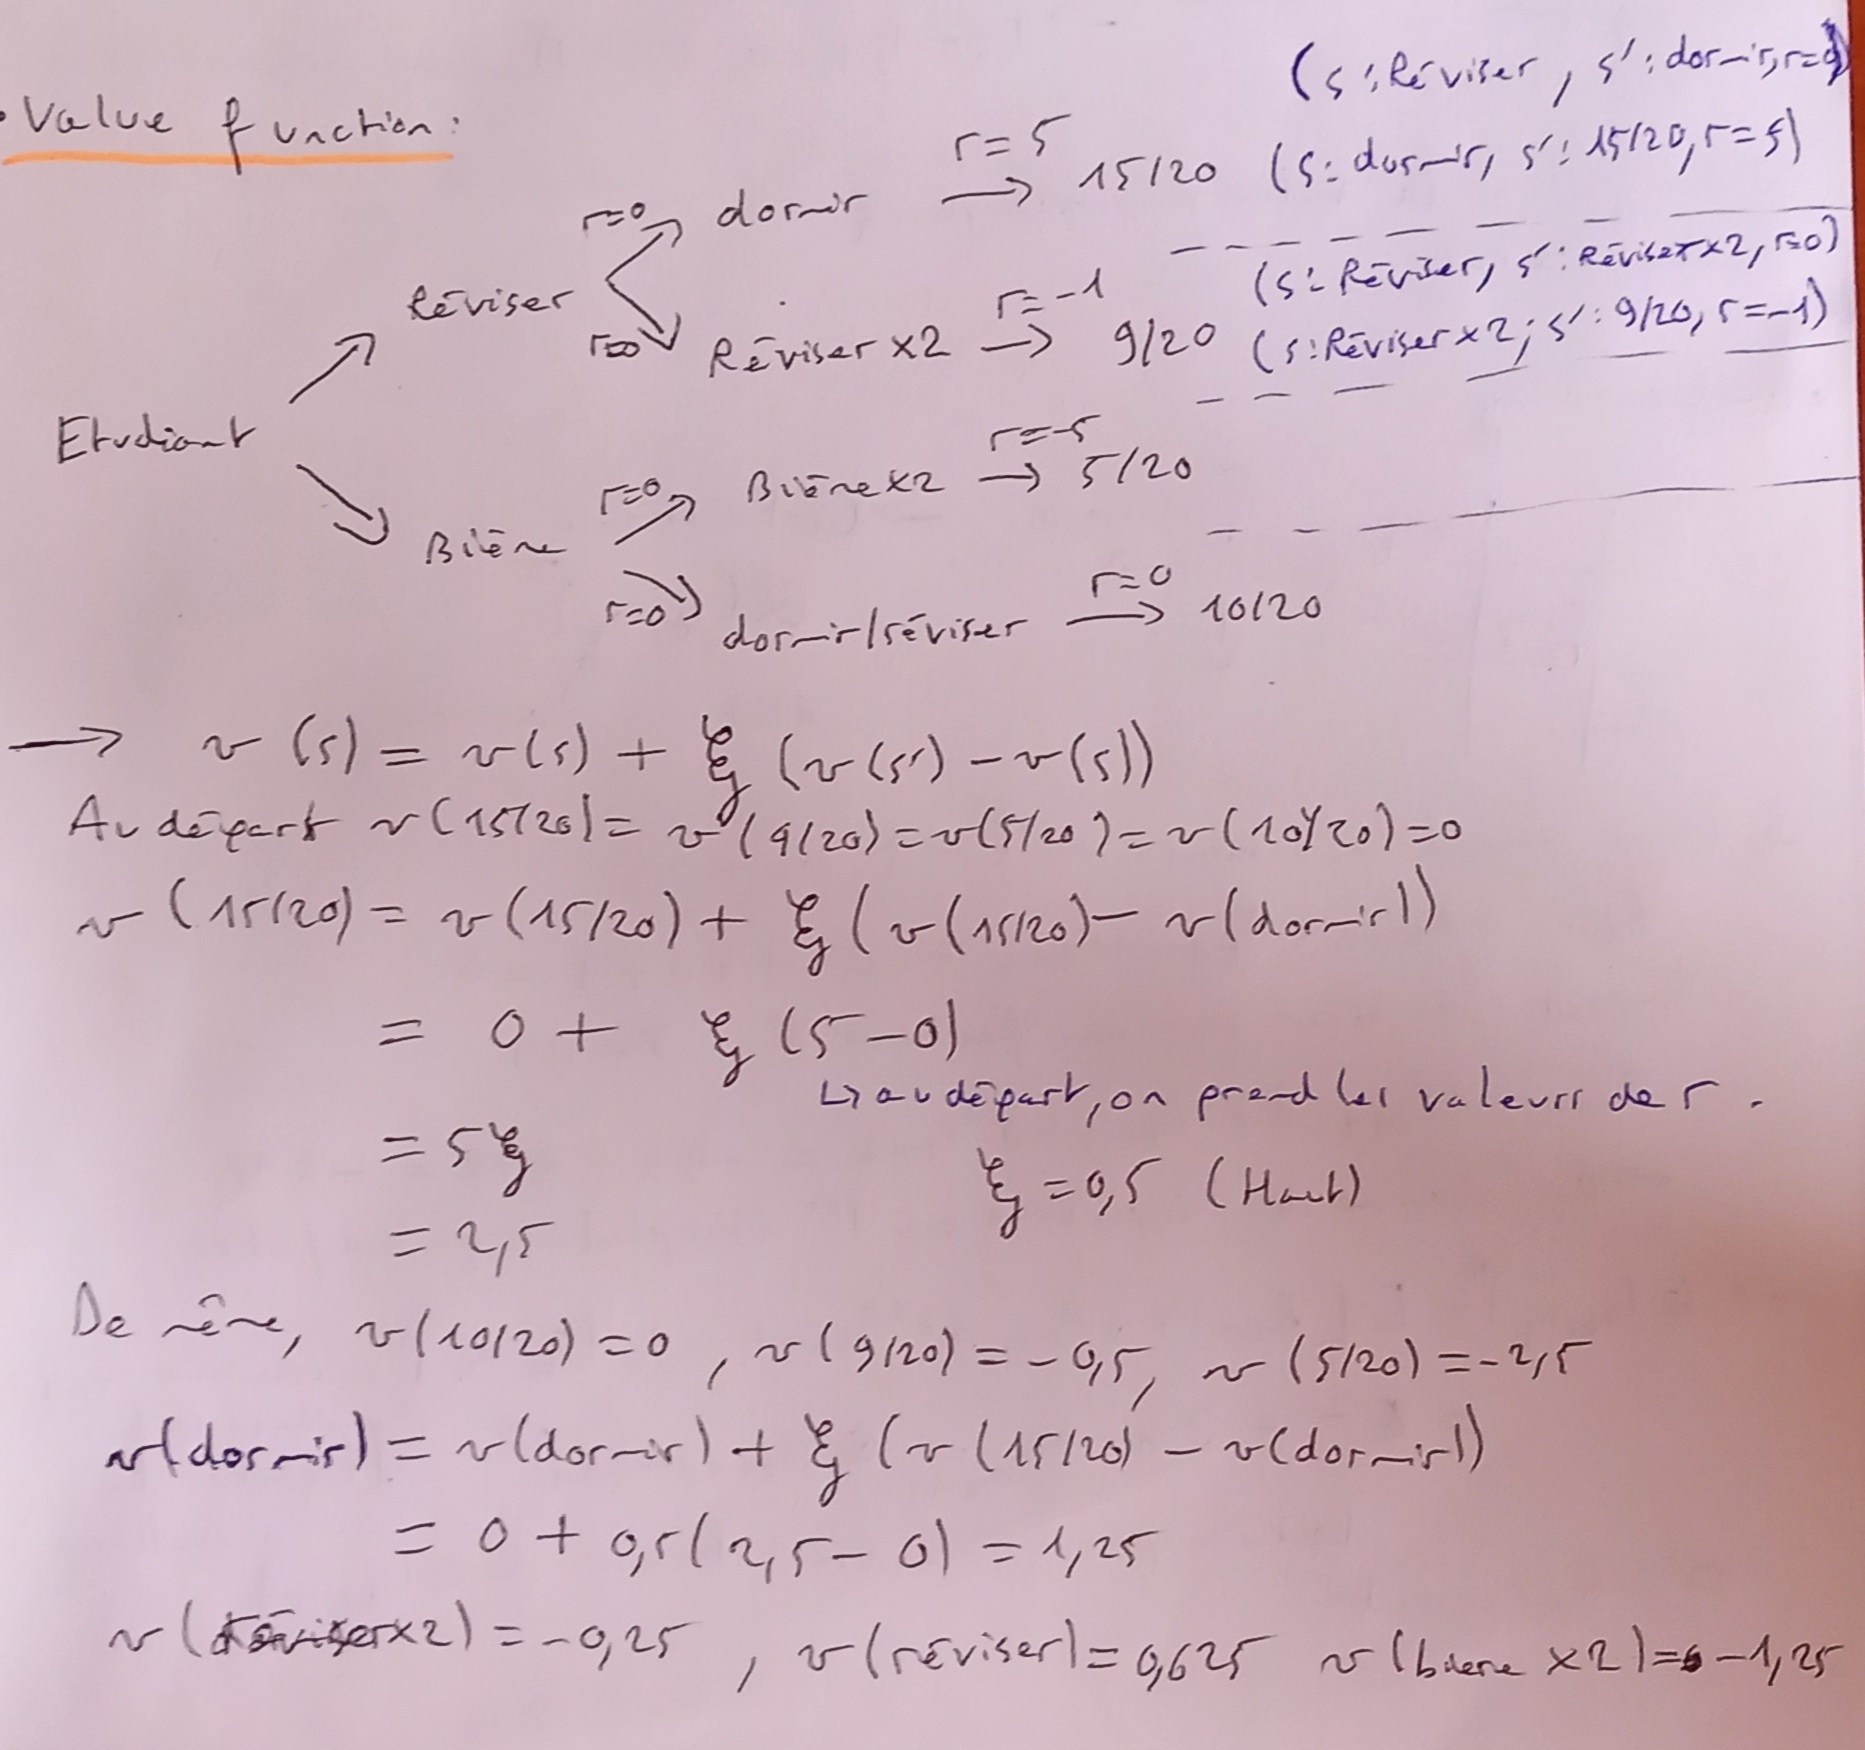 • Value function:
(s: Réviser, s': dormir, r=0)
r=5
r=0 dormir → 15/20 (s: dormir, s': 15/20, r=5)
(s: Réviser, s': Réviser x2, r=0)
Réviser r=-1
r=0 Réviser x2 → 9/20 (s: Réviser x2; s': 9/20, r=-1)
Etudiant
r=-5
r=0 Bière x2 → 5/20
Bière
r=0
r=0 dormir/réviser → 10/20
→ v(s) = v(s) + ξ (v(s') - v(s))
Au départ v(15/20) = v(9/20) = v(5/20) = v(10/20) = 0
v(15/20) = v(15/20) + ξ (v(15/20) - v(dormir))
= 0 + ξ (5-0)
↳ au départ, on prend les valeurs de r.
= 5ξ
ξ = 0,5 (Haut)
= 2,5
De même, v(10/20) = 0, v(9/20) = -0,5, v(5/20) = -2,5
v(dormir) = v(dormir) + ξ (v(15/20) - v(dormir))
= 0 + 0,5(2,5 - 0) = 1,25
v(réviser x2) = -0,25, v(réviser) = 0,625 v(bière x2) = -1,25